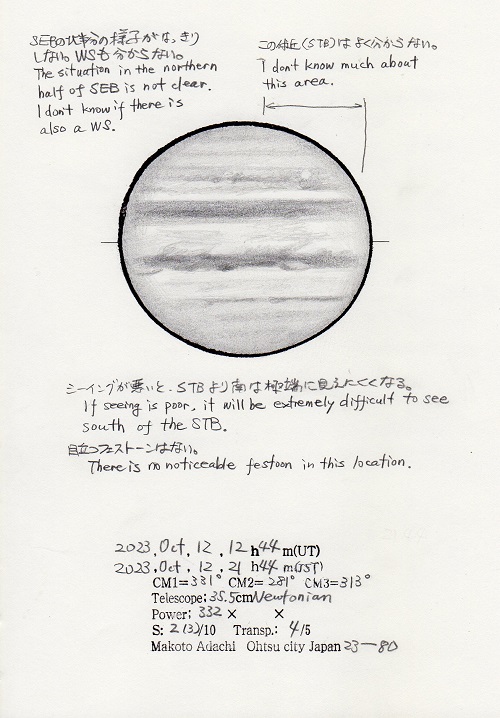 SEBの北半分の様子がはっきり
しない。WSも分からない。
The situation in the northern
half of SEB is not clear.
I don't know if there is
also a WS.
この付近(STB)はよく分からない。
I don't know much about
this area.
シーイングが悪いと、STBより南は極端に見えにくくなる。
If seeing is poor, it will be extremely difficult to see
south of the STB.
目立つフェストーンはない。
There is no noticeable festoon in this location.
2023, Oct, 12, 12 h 44 m(UT)
2023, Oct, 12, 21 h 44 m(JST)
CM1= 331° CM2= 281° CM3=313°
Telescope: 35.5cm Newtonian
Power: 332 × ×
S: 2(3)/10 Transp.: 4/5
Makoto Adachi Ohtsu city Japan 23-80